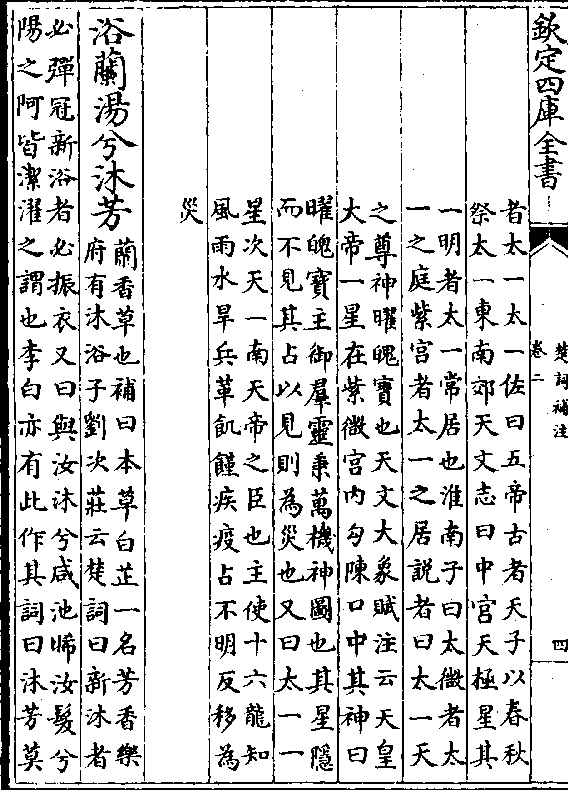 欽定四庫全書
楚詞補注
卷二
四
者太一太一佐曰五帝古者天子以春秋
祭太一東南郊天文志曰中宮天極星其
一明者太一常居也淮南子曰太微者太
一之庭紫宮者太一之居説者曰太一天
之尊神曜魄寶也天文大象賦注云天皇
大帝一星在紫微宮内勾陳口中其神曰
曜魄寶主御羣靈秉萬機神圖也其星隱
而不見其占以見則為災也又曰太一一
星次天一南天帝之臣也主使十六龍知
風雨水旱兵革飢饉疾疫占不明反移為
災
浴蘭湯兮沐芳
蘭香草也補曰本草白芷一名芳香樂
府有沐浴子劉次莊云楚詞曰新沐者
必彈冠新浴者必振衣又曰與汝沐兮咸池晞汝髮兮
陽之阿皆潔濯之謂也李白亦有此作其詞曰沐芳莫